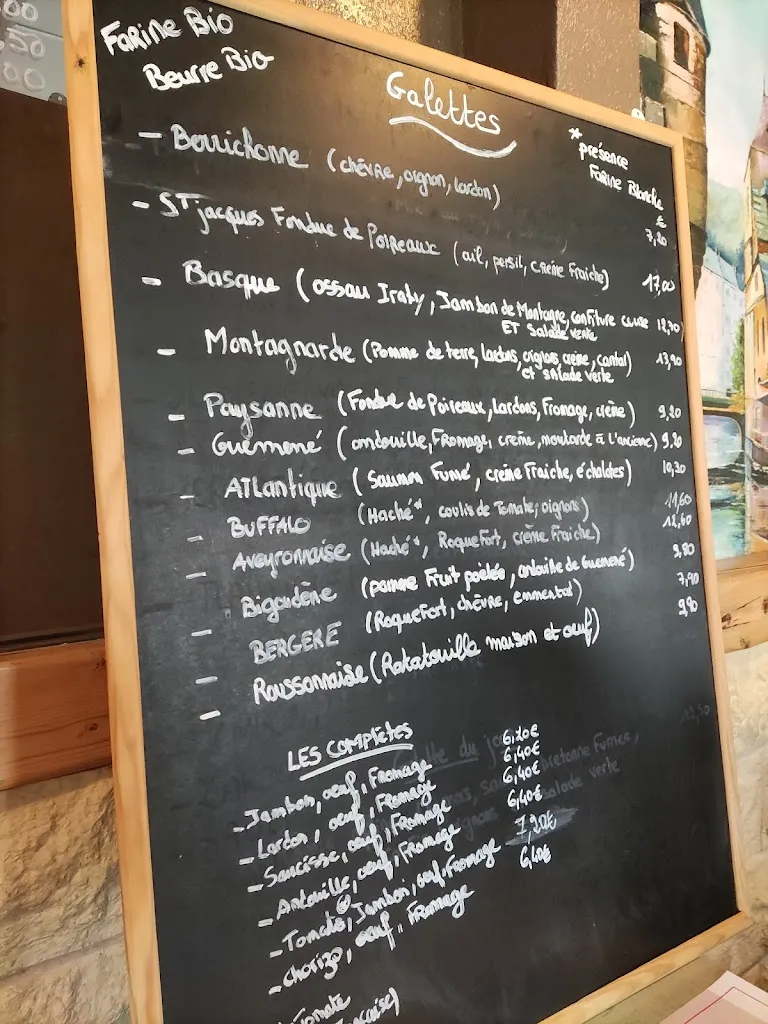 00
,50
,00
Farine Bio
Beurre Bio
Galettes
* présence
Farine Blanche
€
- Berrichonne (chèvre, oignon, lardon) 7,20
- St jacques Fondue de Poireaux (ail, persil, crème Fraîche) 17,00
- Basque (ossau Iraty, Jambon de Montagne, confiture cerise
ET Salade verte
- Montagnarde (Pomme de terre, lardons, oignons crème, cantal) 13,90
et salade verte
- Paysanne (Fondue de Poireaux, Lardons, Fromage, crème) 9,20
- Guémené (andouille, Fromage, crème, moutarde à l'ancienne) 9,20
- ATLantique (Saumon Fumé, crème Fraiche, échalotes) 10,30
- BUFFALO (Haché*, coulis de Tomate, oignons) 11,60
- Aveyronnaise (Haché*, Roquefort, crème Fraiche) 12,60
- Bigoudène (pomme Fruit poêlée, andouille de Guémené)
- BERGERE (Roquefort, chèvre, emmental) 7,90
- Roussonnaise (Ratatouille maison et oeuf)
LES COMPLÈTES
- Jambon, oeuf, Fromage 6,20€
- Lardon, oeuf, Fromage 6,40€
- Saucisse, oeuf, Fromage 6,40€
- Antouille, oeuf, Fromage 6,40€
- Tomate, Jambon, oeuf, Fromage 7,20€
- Chorizo, oeuf, Fromage 6,40€
Tomate